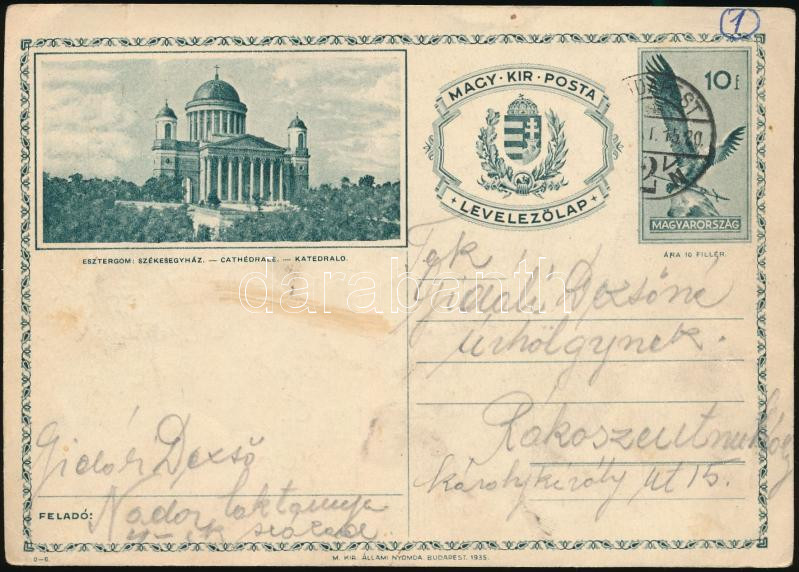 1
MAGY · KIR · POSTA
LEVELEZŐLAP
10 f
MAGYARORSZÁG
ÁRA 10 FILLÉR.
ESZTERGOM: SZÉKESEGYHÁZ. — CATHÉDRALE. — KATEDRALO.
darabanth
Dezsőné
úrhölgynek.
Rákoszentmihály
Károly király út 15.
Dezső
FELADÓ: Nádor laktanya
század
0-6.
M. KIR. ÁLLAMI NYOMDA. BUDAPEST. 1935.